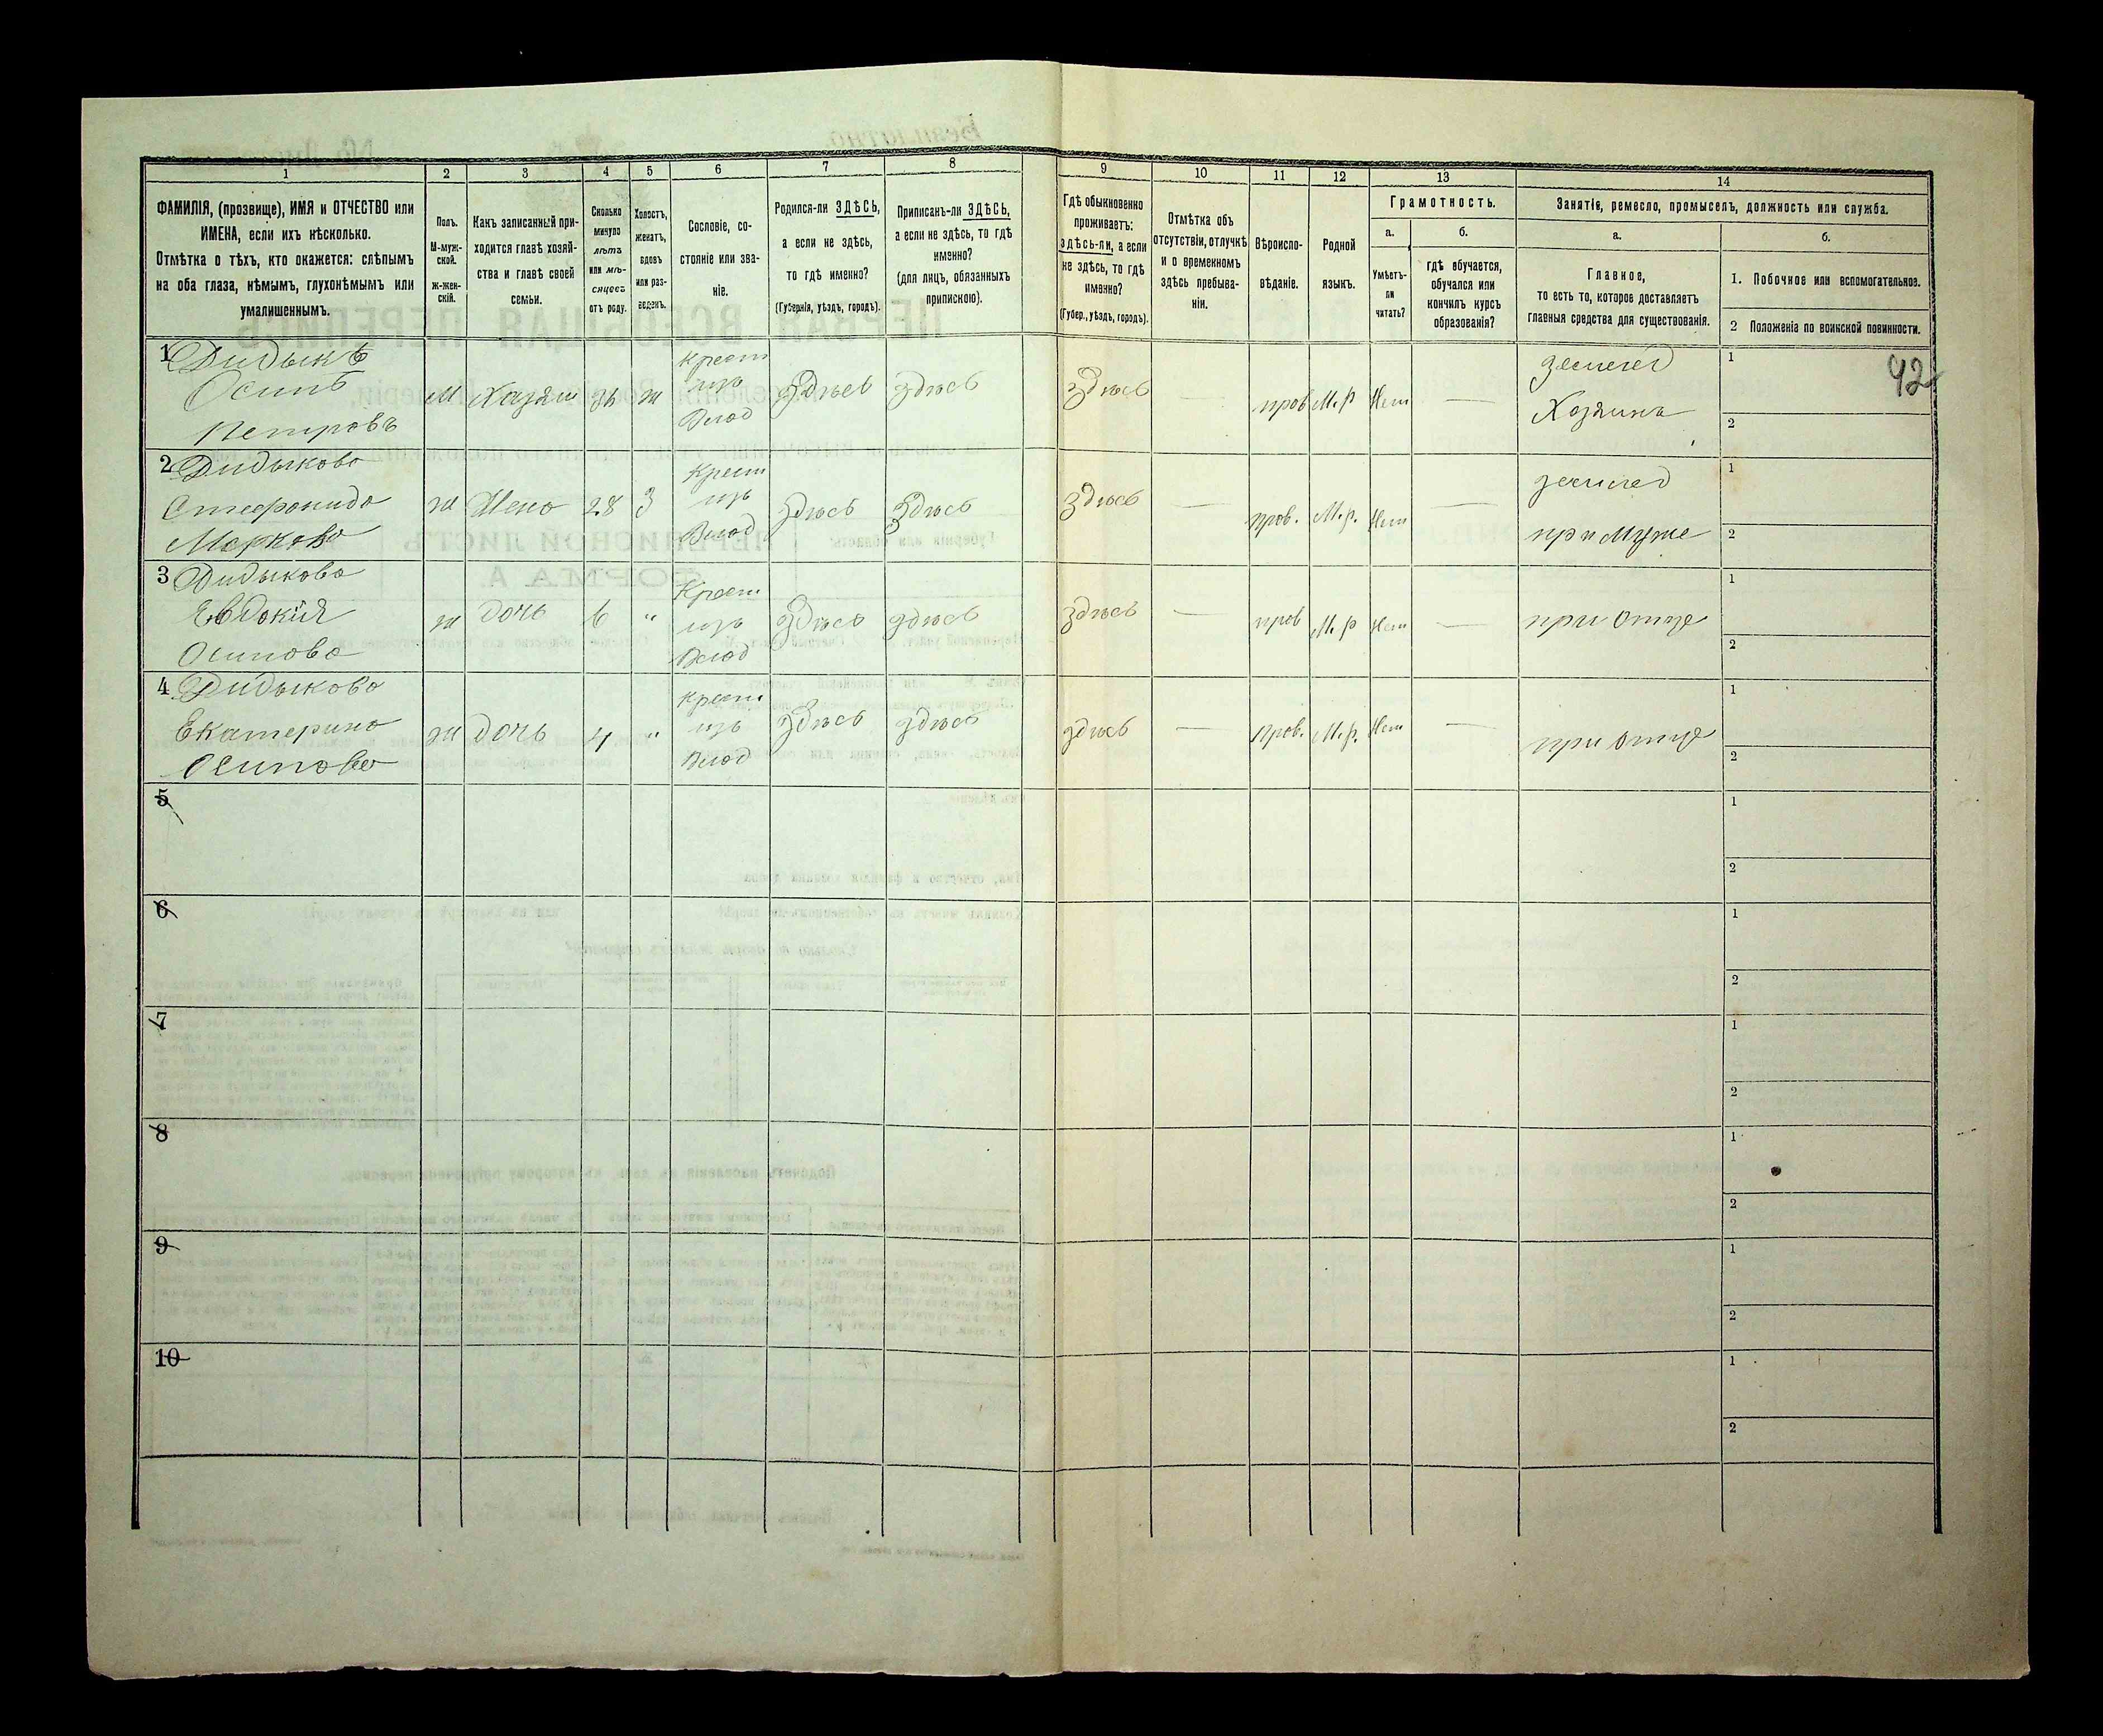 1 2 3 4 5 6 7 8 9 10 11 12 13 14
ФАМИЛІЯ, (прозвище), ИМЯ и ОТЧЕСТВО или
ИМЕНА, если ихъ нѣсколько.
Отмѣтка о тѣхъ, кто окажется: слѣпымъ
на оба глаза, нѣмымъ, глухонѣмымъ или
умалишеннымъ.
Полъ.
М-муж-
ской.
ж-жен-
скій.
Какъ записанный при-
ходится главѣ хозяй-
ства и главѣ своей
семьи.
Сколько
минуло
лѣтъ
или мѣ-
сяцевъ
отъ роду.
Холостъ,
женатъ,
вдовъ
или раз-
веденъ.
Сословіе, со-
стояніе или зва-
ніе.
Родился-ли ЗДѢСЬ,
а если не здѣсь,
то гдѣ именно?
(Губернія, уѣздъ, городъ).
Приписанъ-ли ЗДѢСЬ,
а если не здѣсь, то гдѣ
именно?
(для лицъ, обязанныхъ
припискою).
Гдѣ обыкновенно
проживаетъ:
здѣсь-ли, а если
не здѣсь, то гдѣ
именно?
(Губер., уѣздъ, городъ).
Отмѣтка объ
отсутствіи, отлучкѣ
и о временномъ
здѣсь пребыва-
ніи.
Вѣроиспо-
вѣданіе.
Родной
языкъ.
Грамотность.
а.
Умѣетъ-
ли
читать?
б.
гдѣ обучается,
обучался или
кончилъ курсъ
образованія?
Занятіе, ремесло, промыселъ, должность или служба.
а.
Главное,
то есть то, которое доставляетъ
главныя средства для существованія.
б.
1. Побочное или вспомогательное.
2 Положеніе по воинской повинности.
42
1 Дидыкъ
Осипъ
Петровъ
м Хозяин ж
крест
изъ
Влад
здѣсь здѣсь здѣсь — прав М.р Нет —
землед
Хозяинъ
1
2
2 Дидыкова
Стефанида
Маркова
ж Жена 28 З
крест
изъ
Влад
здѣсь здѣсь здѣсь — прав. М.р. Нет —
землед
при Муже
1
2
3 Дидыкова
Евдокія
Осипова
ж дочь 6 "
Крест
изъ
Влад
здѣсь здѣсь здѣсь — прав М.р Нет —
при отце
1
2
4 Дидыкова
Екатерина
Осипова
ж дочь 4 "
крест
изъ
Влад
здѣсь здѣсь здѣсь — прав. М.р. Нет —
при отце
1
2
5
1
2
6
1
2
7
1
2
8
1
2
9
1
2
10
1
2